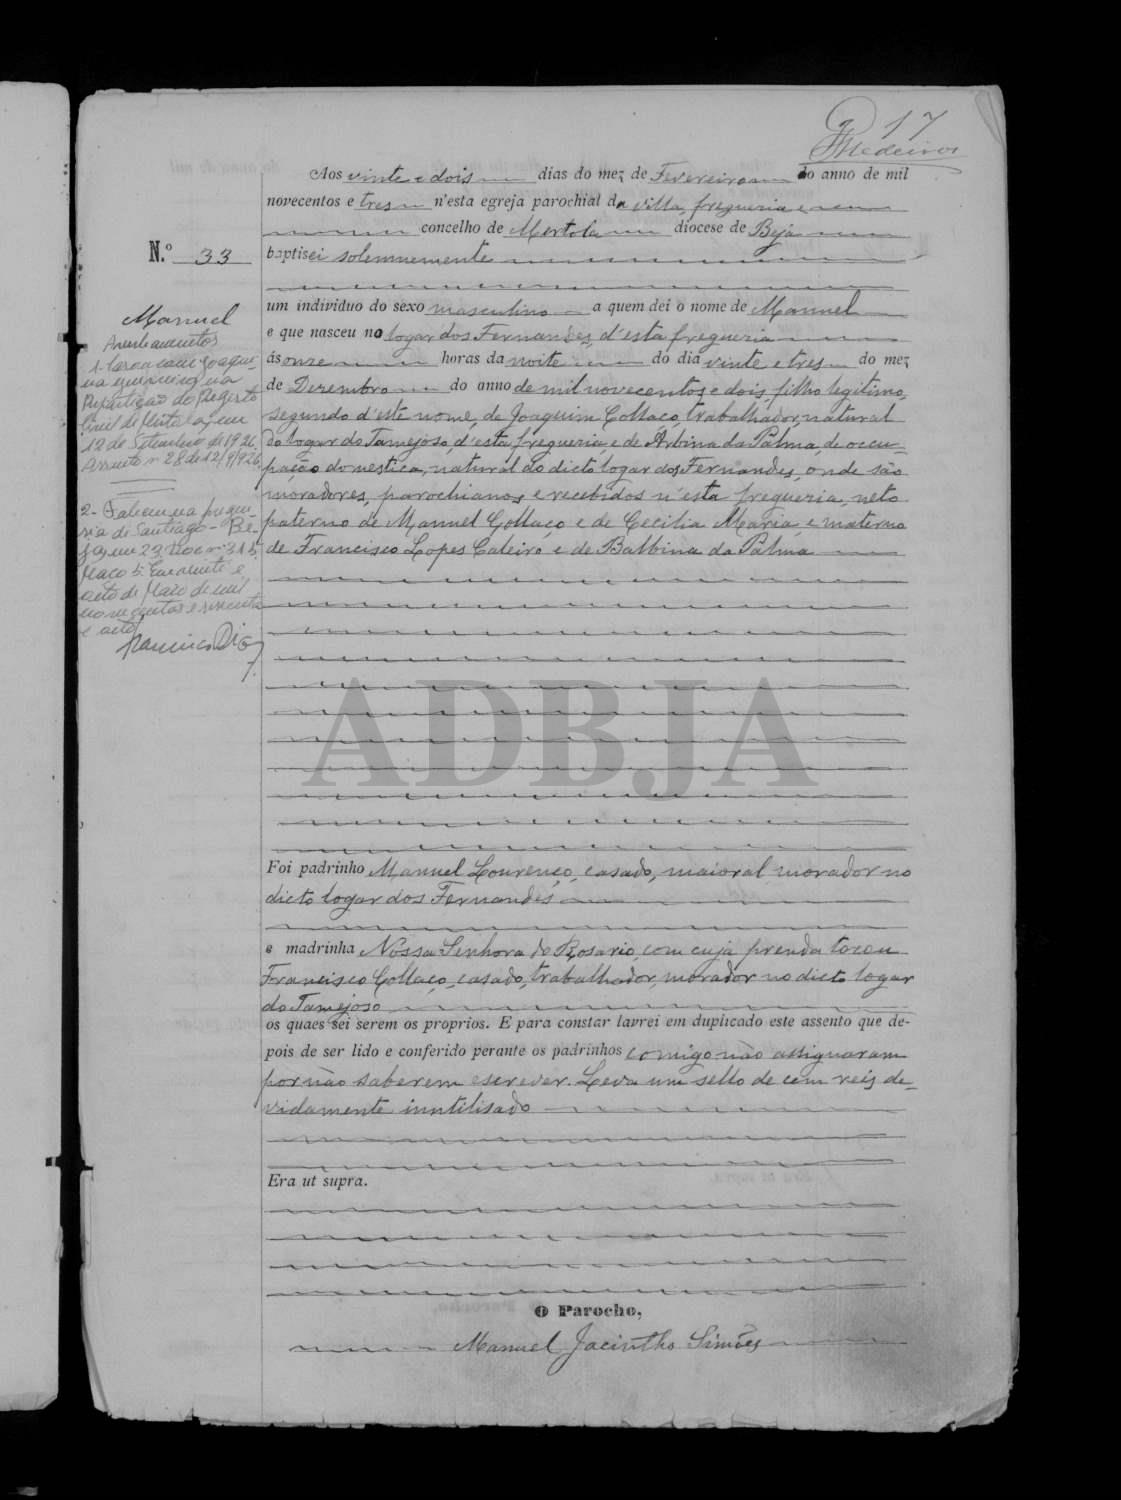 17
Medeiros
Aos vinte e dois dias do mez de Fevereiro do anno de mil
novecentos e tres n'esta egreja parochial da villa, freguezia e
concelho de Mertola diocese de Beja
N.º 33
baptisei solemnemente
um individuo do sexo masculino a quem dei o nome de Manuel
e que nasceu no logar dos Fernandes, d'esta freguezia
ás onze horas da noite do dia vinte e tres do mez
de Dezembro do anno de mil novecentos e dois, filho legitimo,
segundo d'este nome, de Joaquim Collaço, trabalhador, natural
do logar do Tamejoso, d'esta freguezia, e de Arbina da Palma, de occu-
pação domestica, natural do dicto logar dos Fernandes, onde são
moradores, parochianos e recebidos n'esta freguezia, neto
paterno de Manuel Collaço e de Cecilia Maria, e materno
de Francisco Lopes Cateiro e de Balbina da Palma
Manuel
Averbamentos
1- Casou com Joaqui-
na na
Repartição do Registo
Civil de Mertola, em
12 de Setembro de 1926.
Assento nº 28 de 12/9/926.
2- Faleceu na fregue-
sia de Santiago - Be-
ja, em 23.
Maço 5. Em vinte e
oito de Maio de mil
novecentos e sincoenta
e oito
Francisco Dias
Foi padrinho Manuel Lourenço, casado, maioral, morador no
dicto logar dos Fernandes
e madrinha Nossa Senhora do Rosario, com cuja prenda tocou
Francisco Collaço, casado, trabalhador, morador no dicto logar
do Tamejoso
os quaes sei serem os proprios. E para constar lavrei em duplicado este assento que de-
pois de ser lido e conferido perante os padrinhos comigo não assignaram
por não saberem escrever. Leva um sello de cem reis de-
vidamente inutilisado
Era ut supra.
O Parocho,
Manuel Jacintho Simões
ADBJA